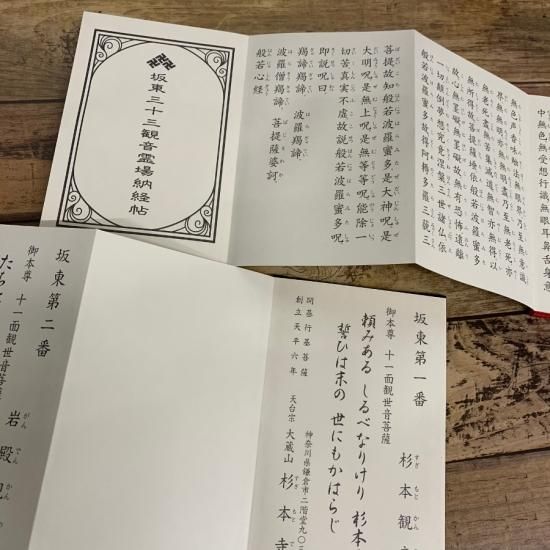 中無色無受想行識無眼耳鼻舌身意
無色声香味触法無眼界乃至無意識
界無無明亦無無明尽乃至無老死亦
無老死尽無苦集滅道無智亦無得以
無所得故菩提薩埵依般若波羅蜜多
故心無罣礙無罣礙故無有恐怖遠離
一切顛倒夢想究竟涅槃三世諸仏依
般若波羅蜜多故得阿耨多羅三藐三
菩提故知般若波羅蜜多是大神呪是
大明呪是無上呪是無等等呪能除一
切苦真実不虚故説般若波羅蜜多呪
即説呪曰
羯諦羯諦、波羅羯諦、
波羅僧羯諦、菩提薩婆訶、
般若心経
坂東三十三観音霊場納経帖
坂東第一番
杉本観
御本尊 十一面観世音菩薩
頼みある しるべなりけり 杉本
誓ひは末の 世にもかはらじ
開基行基菩薩
創立天平六年
神奈川県鎌倉市二階堂九〇三
天台宗 大蔵山 杉本寺
坂東第二番
岩殿観
御本尊 十一面観世音菩薩
たち